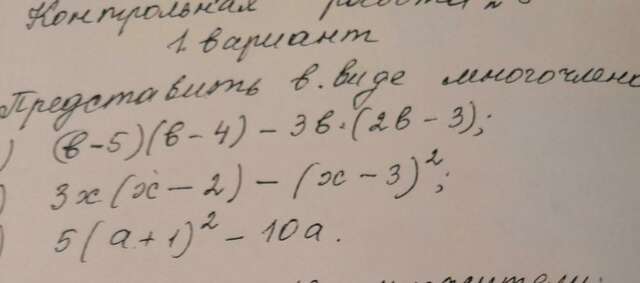 Контрольная работа
1. вариант
Представить в виде многочлена
) (в-5)(в-4) - 3в·(2в-3);
) 3х(х-2) - (х-3)²;
) 5(а+1)² - 10а.